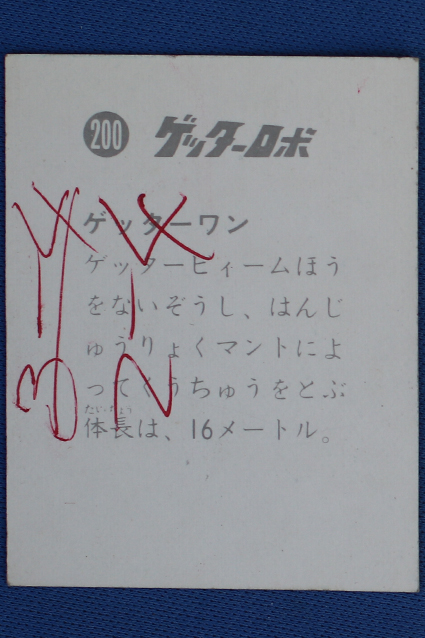 200 ゲッターロボ
ゲッターワン
ゲッタービィームほう
をないぞうし、はんじ
ゅうりょくマントによ
ってくうちゅうをとぶ
たいちょう
体長は、16メートル。